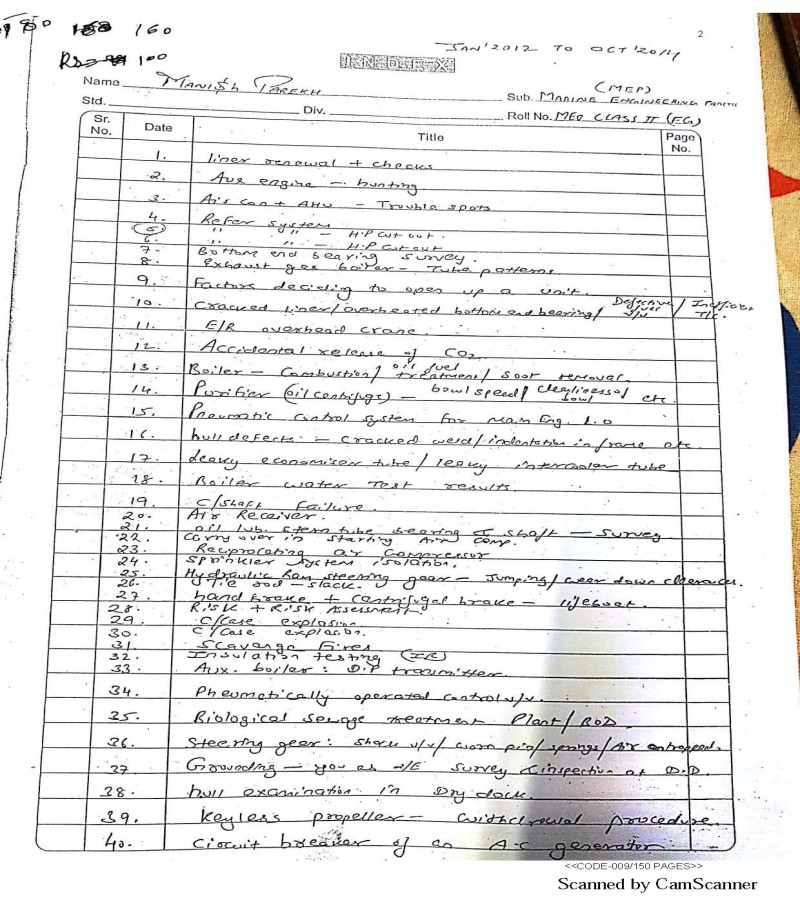 150 160
2
JAN'2012 TO OCT'2014
Rs 100
INDEX
Name MANISH PAREKH
(MEP)
Sub. MARINE ENGINEERING
Std. Div. Roll No. MEO CLASS II (FG)
Sr. No. Date Title Page No.
1. liner renewal + checks
2. Aux engine - hunting
3. Air Con + AHU - Trouble spots
4. Refer system
5 " " - H.P cut out.
6. " " - H.P cut out
7. Bottom end bearing survey.
8. Exhaust gas boiler - Tube patterns
9. Factors deciding to open up a unit.
10. Cracked liner/overheated bottom end bearing/ Defective fuel v/v / T/C.
11. E/R overhead crane.
12. Accidental release of CO2
13. Boiler - Combustion/ oil fuel treatment/ soot removal.
14. Purifier (oil centrifuge) - bowl speed/ cleanliness of bowl etc.
15. Pneumatic control system for main Eng. L.O
16. hull defects - cracked weld/indentation in frame etc.
17. leaky economiser tube / leaky intercooler tube
18. Boiler water Test results.
19. C/shaft failure.
20. Air Receiver.
21. oil lub. stern tube bearing & shaft - survey
22. Carry over in starting Air comp.
23. Reciprocating air compressor
24. Sprinkler system isolation.
25. Hydraulic Ram steering gear - Jumping/wear down clearances.
26. Tie rod - slack.
27. hand brake + Centrifugal brake - lifeboat.
28. Risk + Risk Assessment.
29. C/Case explosion
30. C/Case explosion.
31. Scavenge fires
32. Insulation testing (IR)
33. Aux. boiler : D.P transmitter.
34. Pneumatically operated control v/v.
35. Biological sewage treatment Plant/BOD.
36. Steering gear: shock v/v/ worn pin/ springs/ Air entrapped.
37 Grounding - you as 2/E survey & inspection at D.D.
38. hull examination in Dry dock.
39. keyless propeller - withdrawal procedure.
40. Circuit breaker of an A-C generator
<<CODE-009/150 PAGES>>
Scanned by CamScanner